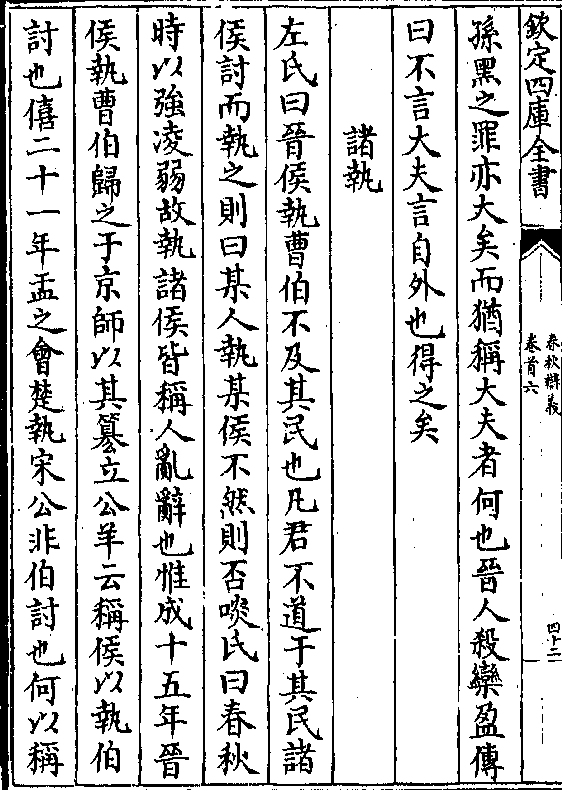 欽定四庫全書
春秋辯義
卷首六
四十二
孫黑之罪亦大矣而猶稱大夫者何也晉人殺欒盈傳
曰不言大夫言自外也得之矣
諸執
左氏曰晉侯執曹伯不及其民也凡君不道于其民諸
侯討而執之則曰某人執某侯不然則否啖氏曰春秋
時以強凌弱故執諸侯皆稱人亂辭也惟成十五年晉
侯執曹伯歸之于京師以其簒立公羊云稱侯以執伯
討也僖二十一年盂之會楚執宋公非伯討也何以稱